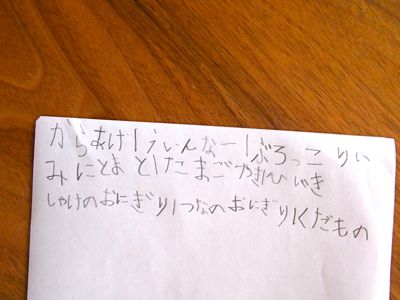 からあげ|ういんなー|ぶろっこりい
みにとまと|たまごやき|ひじき
しゃけのおにぎり|つなのおにぎり|くだもの